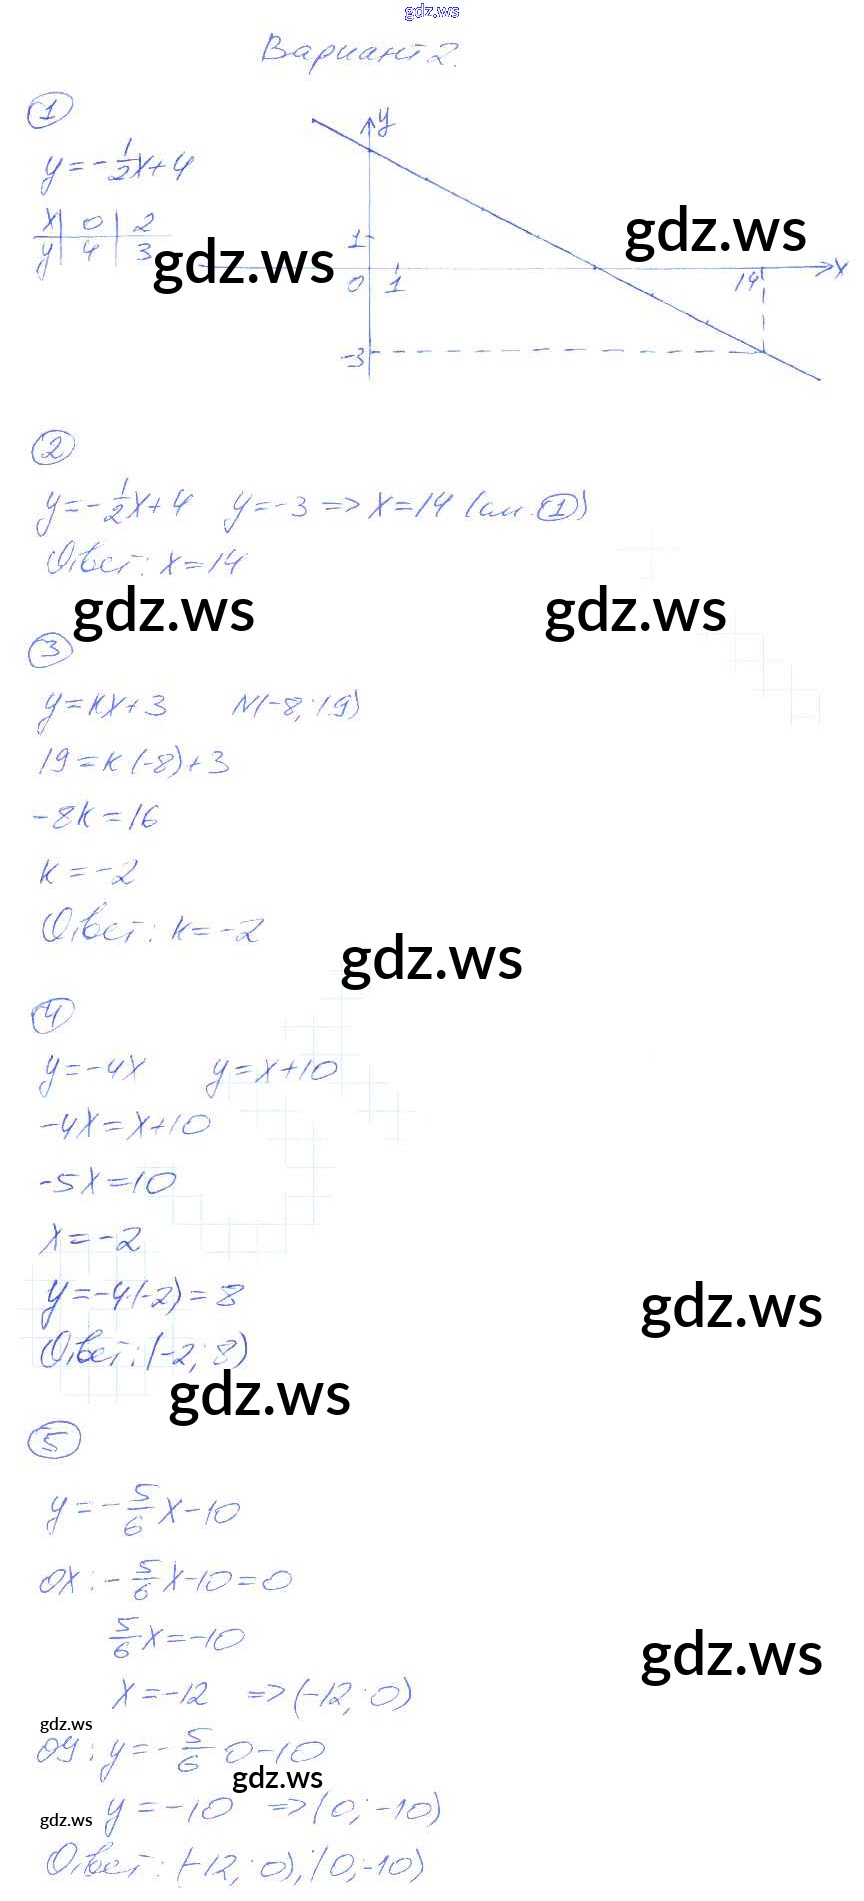 gdz.ws
Вариант 2.
1
y = -1/2x+4
x | 0 | 2
y | 4 | 3
gdz.ws
gdz.ws
y
1
0 1
14
x
-3
2
y = -1/2x+4 y = -3 => x = 14 (см. 1)
Ответ: x = 14
gdz.ws gdz.ws
3
y = kx+3 N(-8; 19)
19 = k(-8)+3
-8k = 16
k = -2
Ответ: k = -2
gdz.ws
4
y = -4x y = x+10
-4x = x+10
-5x = 10
x = -2
y = -4·(-2) = 8
gdz.ws
Ответ: (-2; 8)
gdz.ws
5
y = -5/6x-10
OX: -5/6x-10 = 0
5/6x = -10
gdz.ws
x = -12 => (-12; 0)
gdz.ws
OY: y = -5/6·0-10
gdz.ws
y = -10 => (0; -10)
gdz.ws
Ответ: (-12; 0); (0; -10)